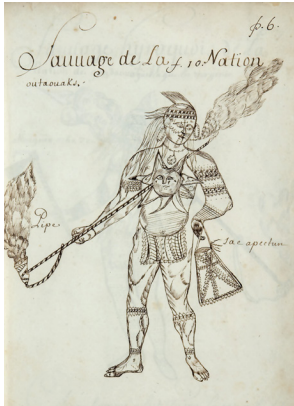 p. 6.
Sauuage de La f 10. Nation
outaouaks.
Pipe
Sac apectun